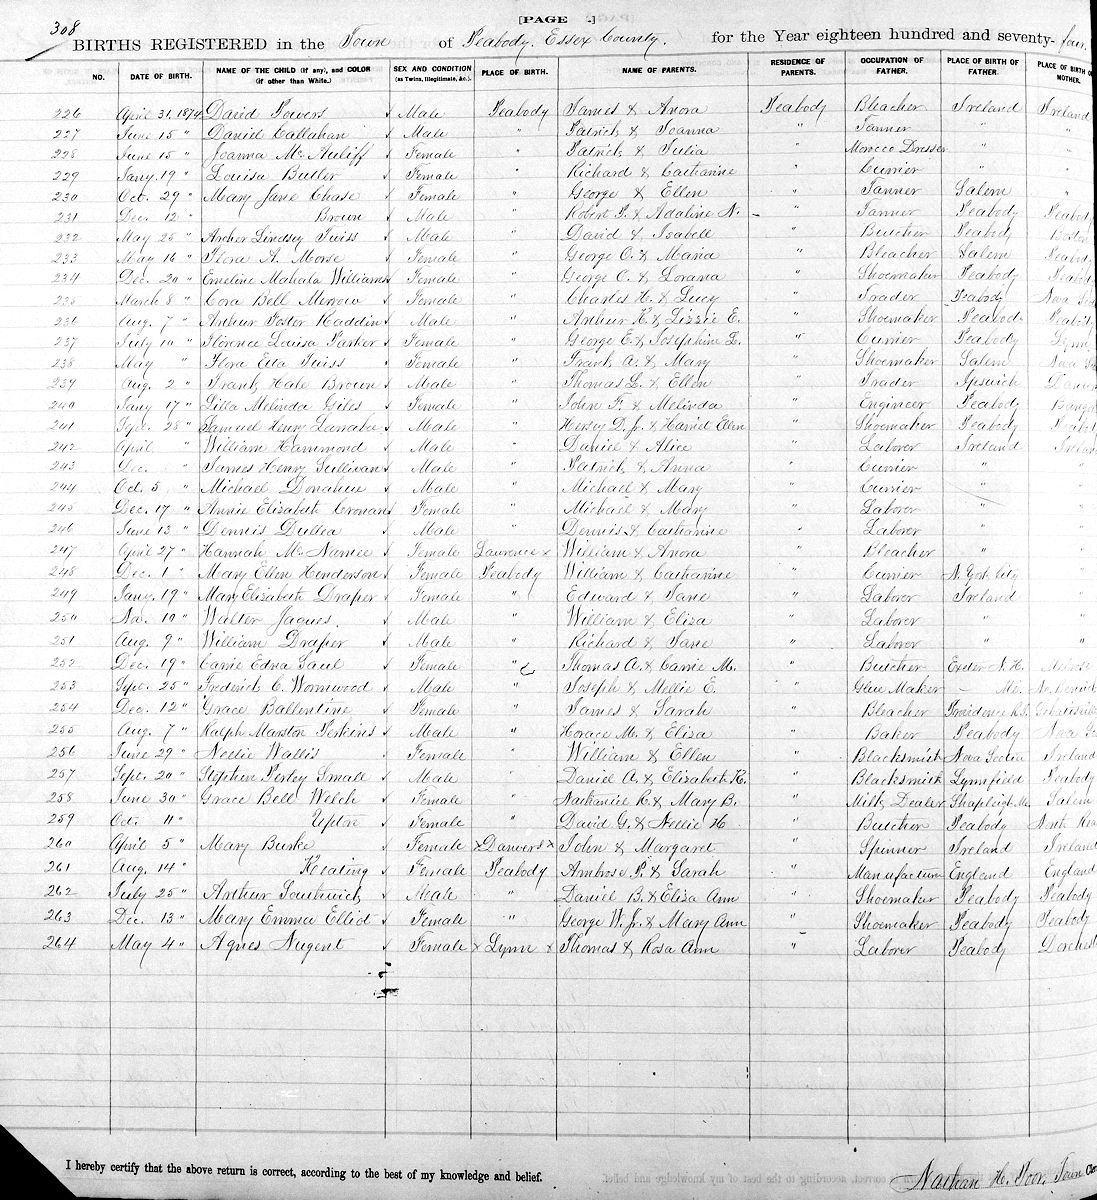 308
[PAGE -]
BIRTHS REGISTERED in the Town of Peabody, Essex County. for the Year eighteen hundred and seventy-four.
NO. DATE OF BIRTH. NAME OF THE CHILD (if any), and COLOR (if other than White.) SEX AND CONDITION (as Twins, Illegitimate, &c.). PLACE OF BIRTH. NAME OF PARENTS. RESIDENCE OF PARENTS. OCCUPATION OF FATHER. PLACE OF BIRTH OF FATHER. PLACE OF BIRTH OF MOTHER.
226 April 31 1874 David Powers Male Peabody James & Anora Peabody Bleacher Ireland Ireland
227 June 15 " Daniel Callahan Male " Patrick & Joanna " Tanner " "
228 June 15 " Joanna McAuliff Female " Patrick & Julia " Morocco Dresser " "
229 Jany. 19 " Louisa Butler Female " Richard & Catharine " Currier " "
230 Oct. 29 " Mary Jane Chase Female " George & Ellen " Tanner Salem "
231 Dec. 12 " Brown Male " Robert P. & Adaline N. " Tanner Peabody Peabody
232 May 25 " Archer Lindsey Twiss Male " David & Isabell " Butcher Peabody Boston
233 May 16 " Flora A. Morse Female " George O. & Maria " Bleacher Salem Peabody
234 Dec. 20 " Emeline Mahala Williams Female " George C. & Lorana " Shoemaker Peabody Peabody
235 March 8 " Cora Bell Merrow Female " Charles H. & Lucy " Trader Peabody Nova
236 Aug. 7 " Arthur Foster Raddin Male " Arthur K. & Lizzie E. " Shoemaker Peabody Peabody
237 July 10 " Florence Louisa Parker Female " George E. & Josephine L. " Currier Peabody Lynn
238 May " Flora Etta Twiss Female " Frank A. & Mary " Shoemaker Salem Nova
239 Aug. 2 " Frank Hale Brown Male " Thomas L. & Ellen " Trader Ipswich Danvers
240 Jany 17 " Lilla Melinda Giles Female " John F. & Melinda " Engineer Peabody Bangor
241 Sept. 28 " Samuel Henry Larrabee Male " Hersey D. Jr. & Harriet Ellen " Shoemaker Peabody Peabody
242 April " William Hammond Male " Daniel & Alice " Laborer Ireland Ireland
243 Dec. " James Henry Sullivan Male " Patrick & Anna " Currier " "
244 Oct. 5 " Michael Donahue Male " Michael & Mary " Currier " "
245 Dec. 17 " Annie Elizabeth Cronan Female " Michael & Mary " Laborer " "
246 June 13 " Dennis Dullea Male " Dennis & Catharine " Laborer " "
247 April 27 " Hannah McNamee Female Lawrence x William & Anora " Bleacher " "
248 Dec. 1 " Mary Ellen Henderson Female Peabody William & Catharine " Currier N. York City "
249 Jany. 19 " Mary Elizabeth Draper Female " Edward & Jane " Laborer Ireland "
250 Nov. 10 " Walter Jaques Male " William & Eliza " Laborer " "
251 Aug. 9 " William Draper Male " Richard & Jane " Laborer " "
252 Dec. 19 " Carrie Edna Saul Female " Thomas A. & Carrie M. " Butcher Exeter N. H. Melrose
253 Sept. 25 " Frederick C. Wormwood Male " Joseph & Mellie E. " Glue Maker - Me. No. Berwick
254 Dec. 12 " Grace Ballentine Female " James & Sarah " Bleacher Providence R.I.
255 Aug. 7 " Ralph Marston Perkins Male " Horace M. & Eliza " Baker Peabody Nova
256 June 29 " Nellie Wallis Female " William & Ellen " Blacksmith Nova Scotia Ireland
257 Sept. 20 " Stephen Perley Small Male " Daniel A. & Elizabeth K. " Blacksmith Lynnfield Peabody
258 June 30 " Grace Bell Welch Female " Nathaniel R. & Mary B. " Milk Dealer Shapleigh Me. Salem
259 Oct. 11 " Upton Female " David G. & Nellie H. " Butcher Peabody
260 April 5 " Mary Burke Female x Danvers x John & Margaret " Spinner Ireland Ireland
261 Aug. 14 " Keating Female Peabody Ambrose P. & Sarah " Manufacturer England England
262 July 25 " Arthur Southwick Male " Daniel B. & Eliza Ann " Shoemaker Peabody Peabody
263 Dec. 13 " Mary Emma Elliot Female " George W. Jr. & Mary Ann " Shoemaker Peabody Peabody
264 May 4 " Agnes Nugent Female x Lynn x Thomas & Rosa Ann " Laborer Peabody Dorchest
I hereby certify that the above return is correct, according to the best of my knowledge and belief.
Nathan H. Poor, Town Cler